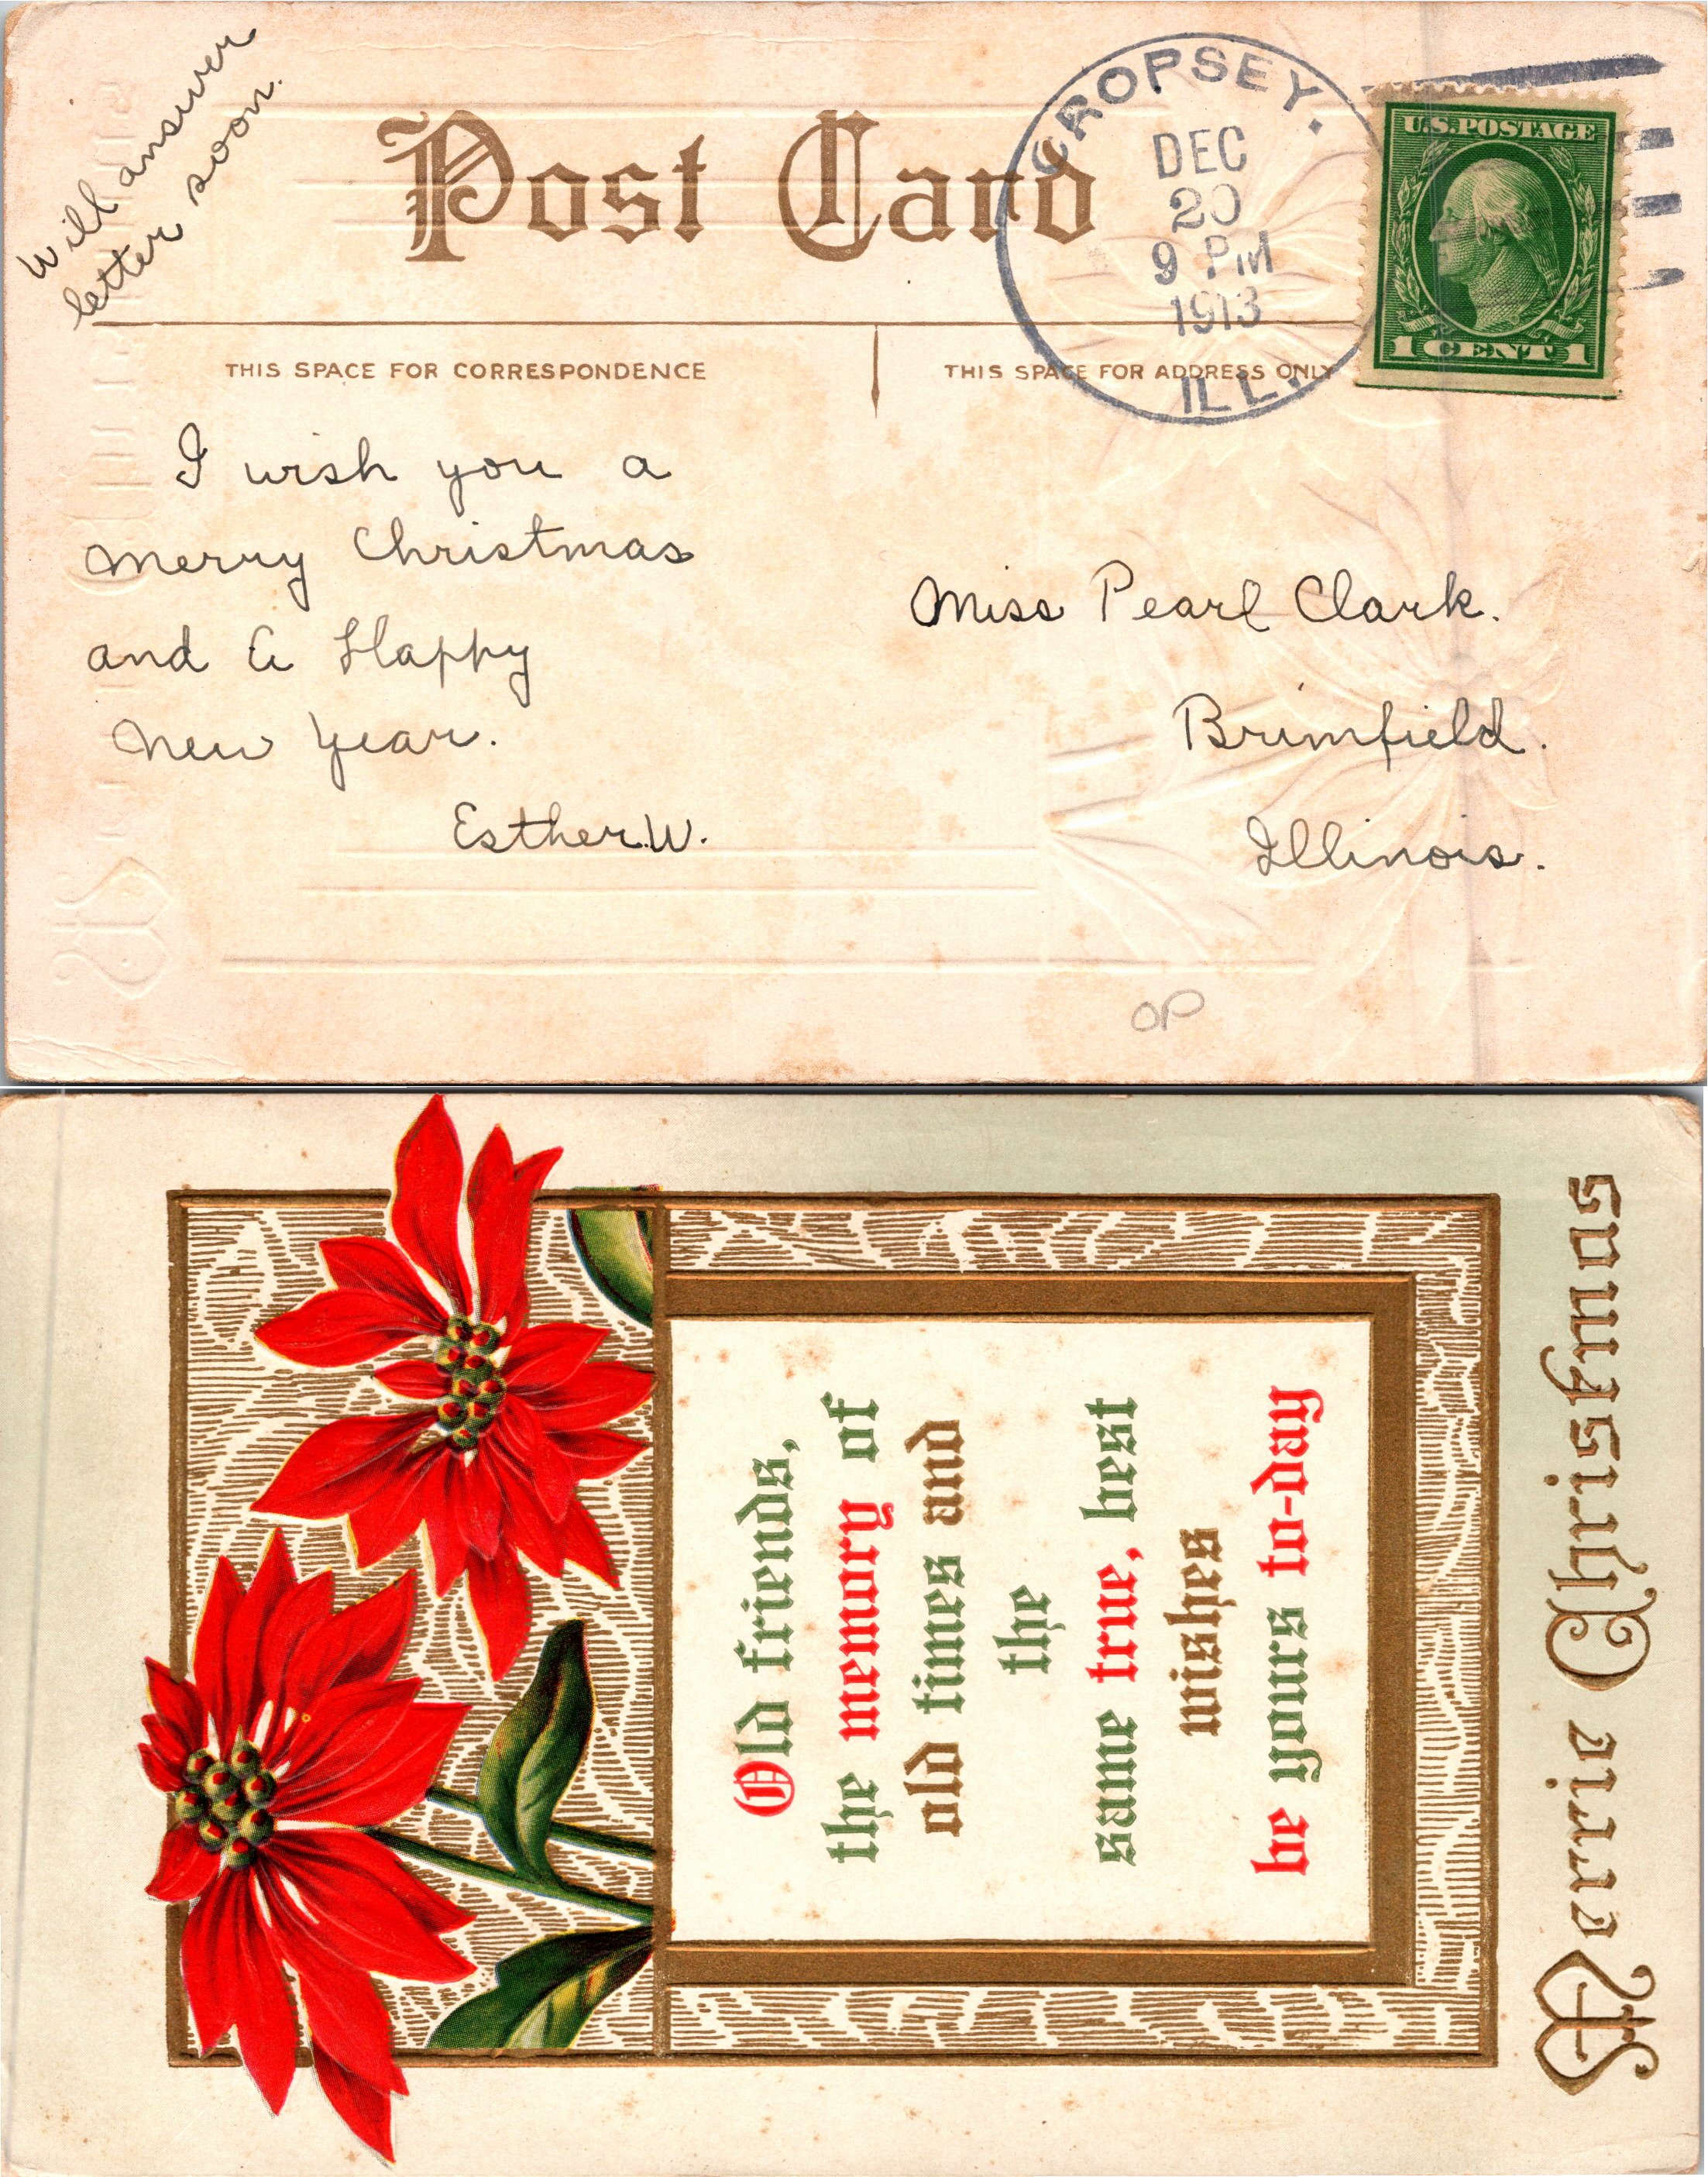 Will answer
letter soon.
Post Card
CROPSEY.
DEC
20
9 PM
1913
ILL.
U.S. POSTAGE
1 CENT 1
THIS SPACE FOR CORRESPONDENCE
THIS SPACE FOR ADDRESS ONLY
I wish you a
merry Christmas
and A Happy
New Year.
Esther.W.
Miss Pearl Clark.
Brimfield.
Illinois.
OP
Old friends,
the memory of
old times and
the
same true, best
wishes
be yours to-day
Merrie Christmas